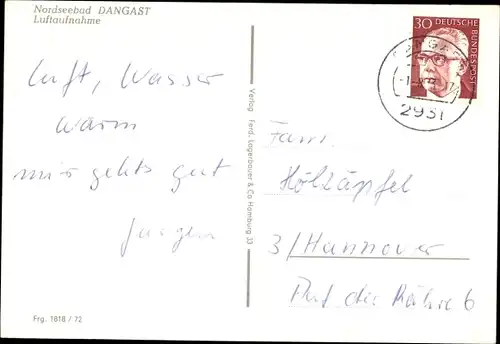 Nordseebad DANGAST
Luftaufnahme
Luft, Wasser
warm
mir gehts gut
Jürgen
Frg. 1818 / 72
Verlag Ferd. Lagerbauer & Co Hamburg 33
30 DEUTSCHE BUNDESPOST
DANGAST
2931
Fam.
Hölzäpfel
3/Hannover
Auf der Höhe 6